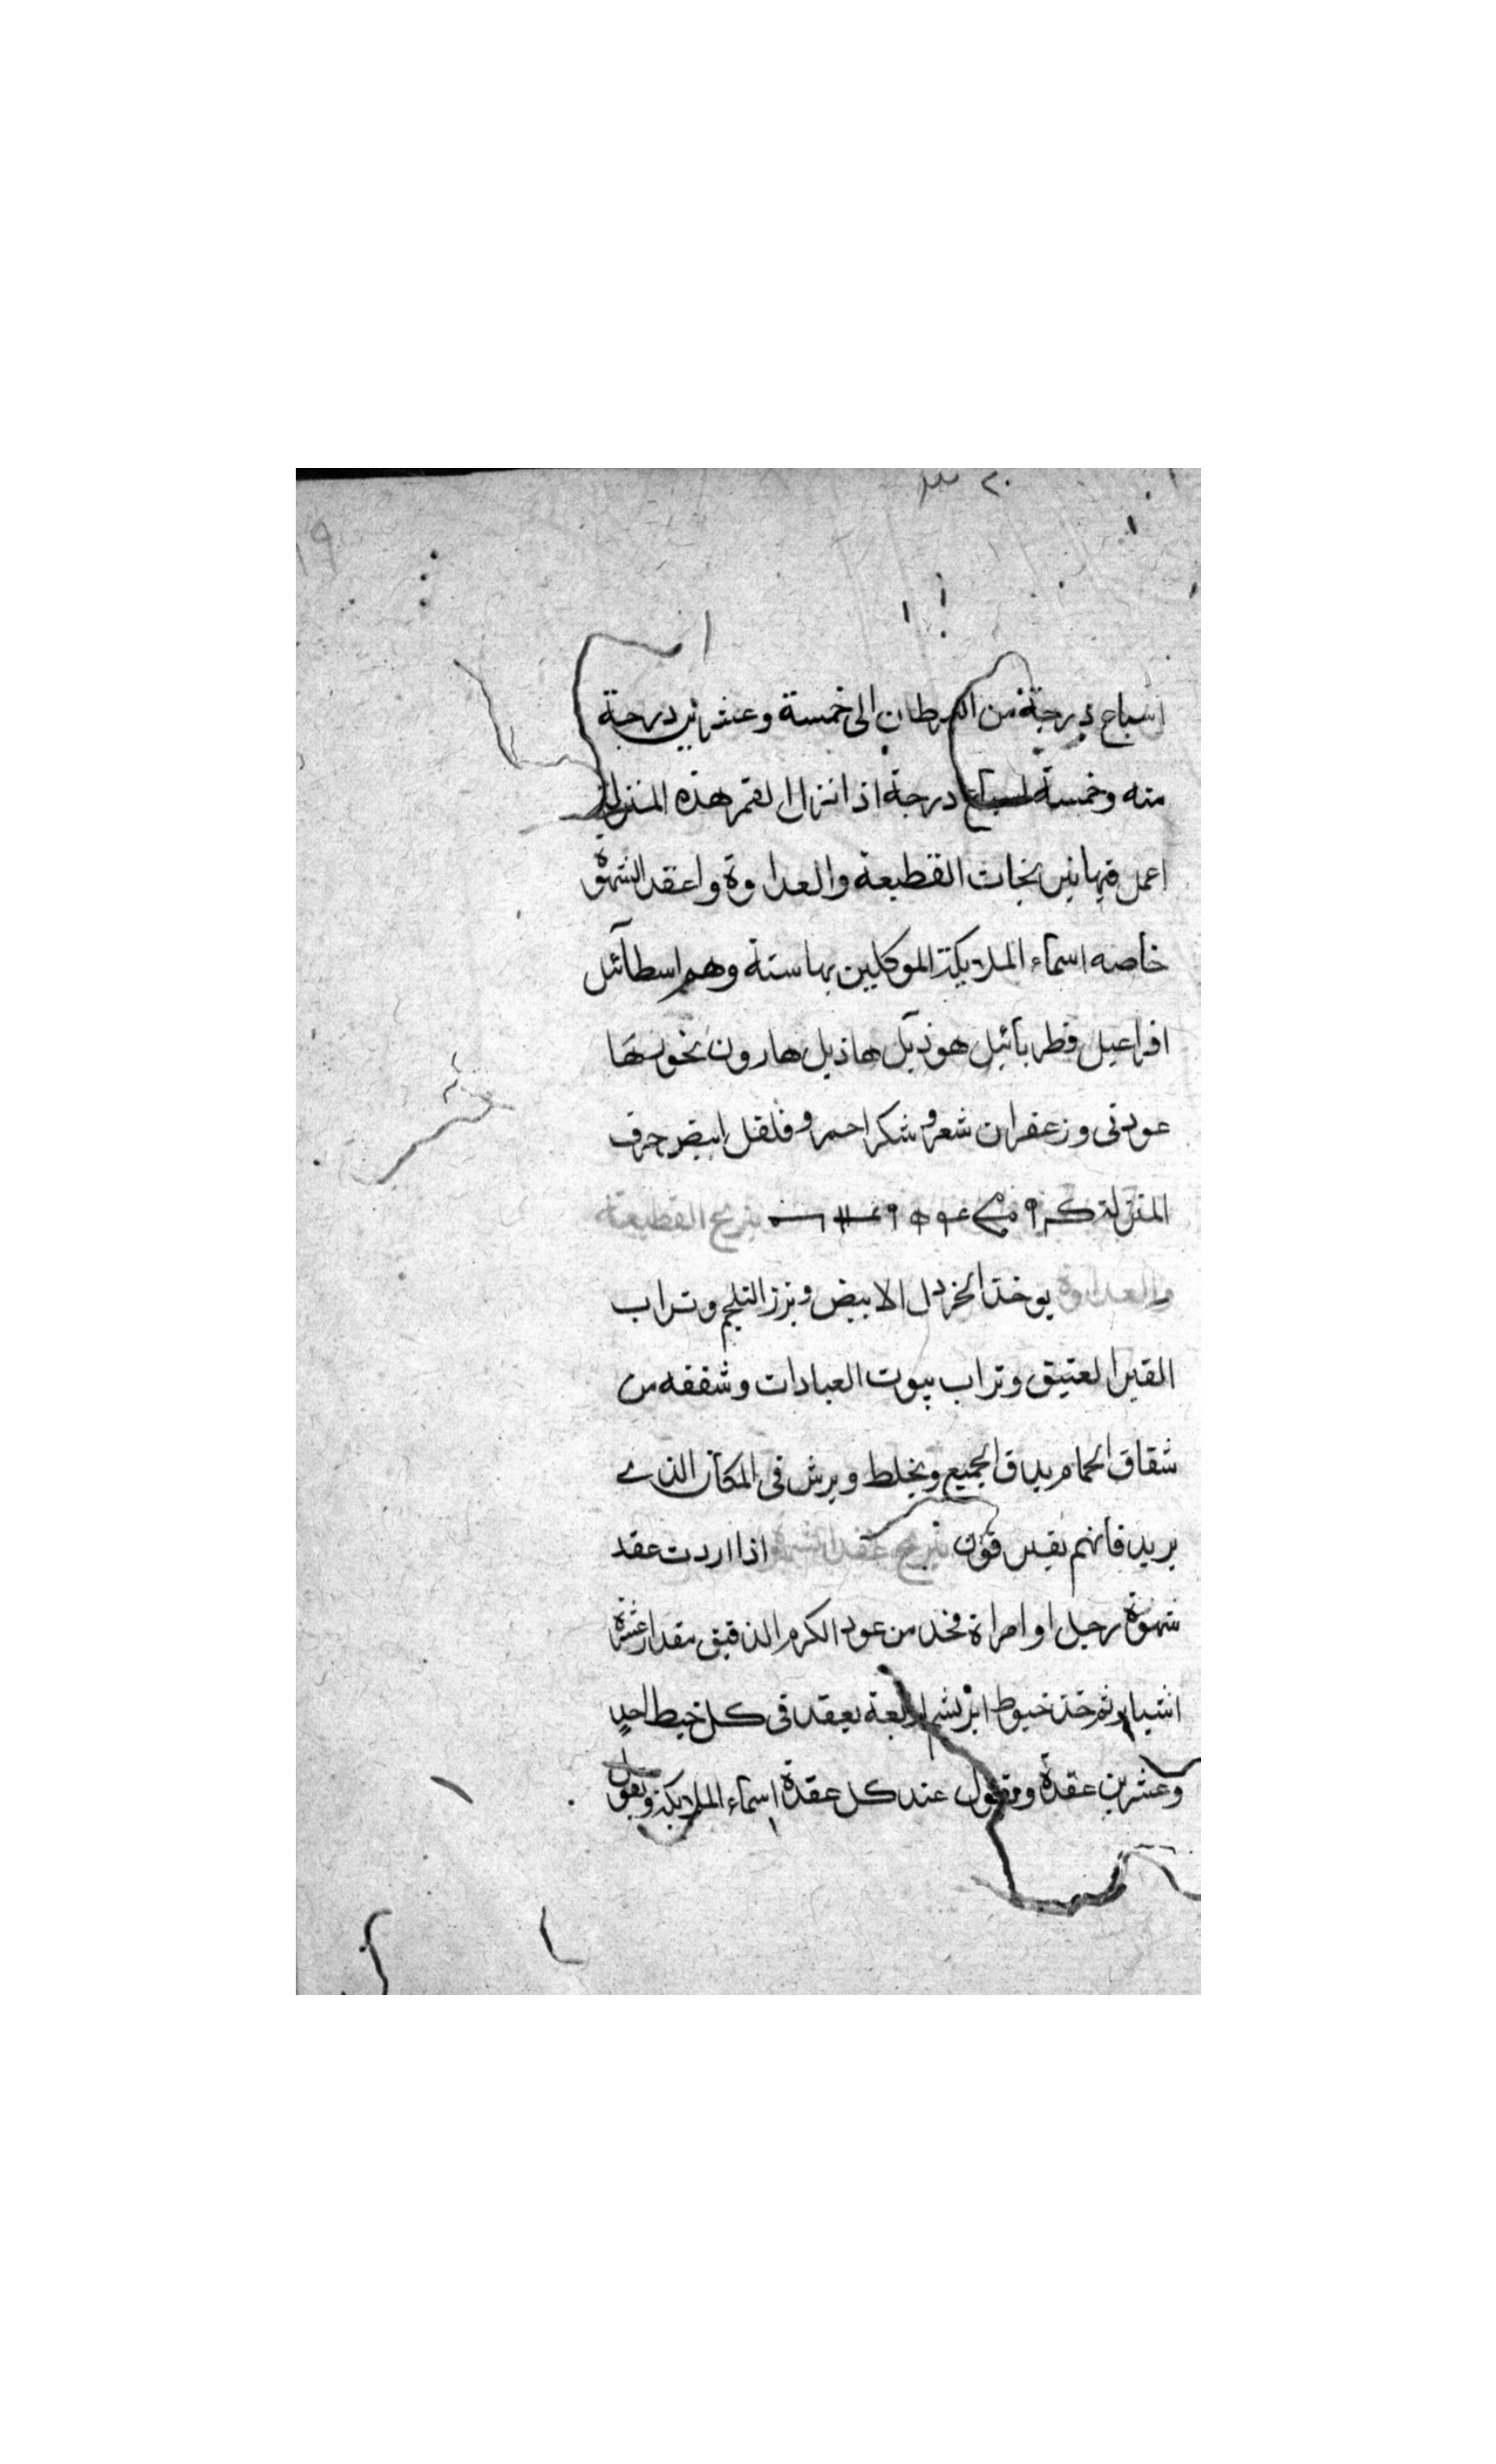 اسباع درجة من السرطان الى خمسة وعشرين درجة
منه وخمسة اسباع درجة اذا نزل القمر هذه المنزلة
اعمل فيها نيرنجات القطيعة والعداوة واعقد الشهوة
خاصه اسماء الملايكة الموكلين بها ستة وهم اسطائل
افراعيل قطربائيل هوذيل هاذيل هارون بخورها
عود ني وزعفران شعر وشكر احمر وفلفل ابيض حرف
المنزلة نيرنج القطيعة
والعداوة يوخذ الخردل الابيض وبزر الثلجم وتراب
القبر العتيق وتراب بيوت العبادات وشققه من
شقاق الحمام يدق الجميع ويخلط ويرش في المكان الذي
يريد فانهم يفترقون نيرنج عقد الشهوة اذا اردت عقد
شهوة رجل او امراة فخذ من عود الكرم الدقيق مقدار عشرة
اشيا وثم خذ خيوط ابريشم اربعة يعقد في كل خيط احد
وعشرين عقدة ويقول عند كل عقدة اسماء الملايكة ويقول